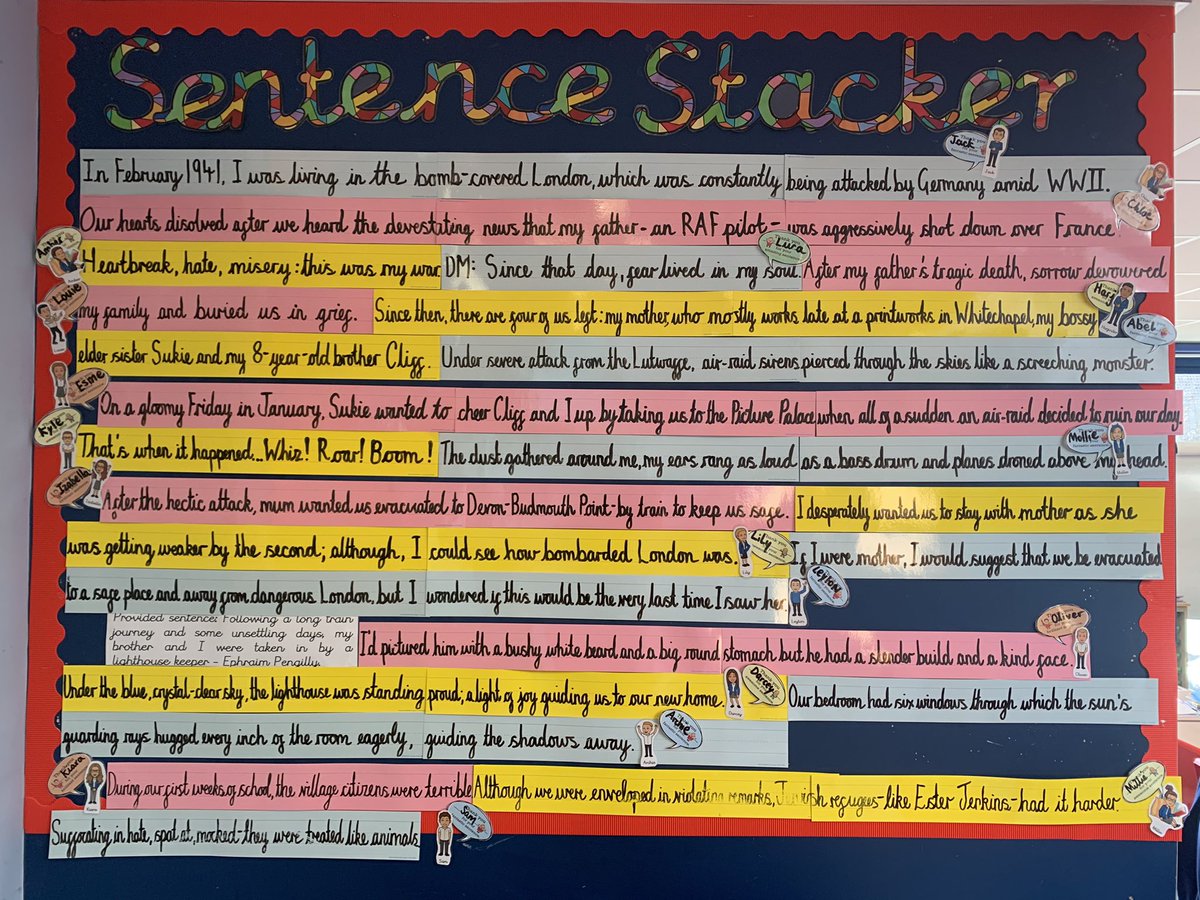 Sentence Stacker
Jack
In February 1941, I was living in the bomb-covered London, which was constantly being attacked by Germany amid WWII.
Chloe
Our hearts disolved after we heard the devestating news that my father - an RAF pilot - was aggressively shot down over France
Lura
Heartbreak, hate, misery: this was my war. DM: Since that day, fear lived in my soul. After my father's tragic death, sorrow devowered
Louie
my family and buried us in grief. Since then, there are four of us left: my mother, who mostly works late at a printworks in Whitechapel, my bossy
Abel
elder sister Sukie and my 8-year-old brother Cliff. Under severe attack from the Lutwaffe, air-raid sirens pierced through the skies like a screeching monster.
Esme
On a gloomy Friday in January, Sukie wanted to cheer Cliff and I up by taking us to the Picture Palace when all of a sudden an air-raid decided to ruin our day.
Kyle
Mollie
That's when it happened...Whiz! Roar! Boom! The dust gathered around me, my ears rang as loud as a bass drum and planes droned above my head.
Izabella
After the hectic attack, mum wanted us evacuated to Devon-Budmouth Point-by train to keep us safe. I desperately wanted us to stay with mother as she
Lily
was getting weaker by the second; although, I could see how bombarded London was. If I were mother, I would suggest that we be evacuated
Leyton
to a safe place and away from dangerous London, but I wondered if this would be the very last time I saw her.
Oliver
Provided sentence: Following a long train
journey and some unsettling days, my
brother and I were taken in by a
lighthouse keeper - Ephraim Pengilly.
I'd pictured him with a bushy white beard and a big round stomach but he had a slender build and a kind face.
Darcey
Under the blue, crystal-clear sky, the lighthouse was standing proud, a light of joy guiding us to our new home. Our bedroom had six windows through which the sun's
guarding rays hugged every inch of the room eagerly, guiding the shadows away.
Kiara
Millie
During our first weeks of school, the village citizens were terrible Although we were enveloped in violating remarks, Jewish refugees-like Ester Jenkins-had it harder.
Sam
Suffocating in hate, spat at, mocked-they were treated like animals